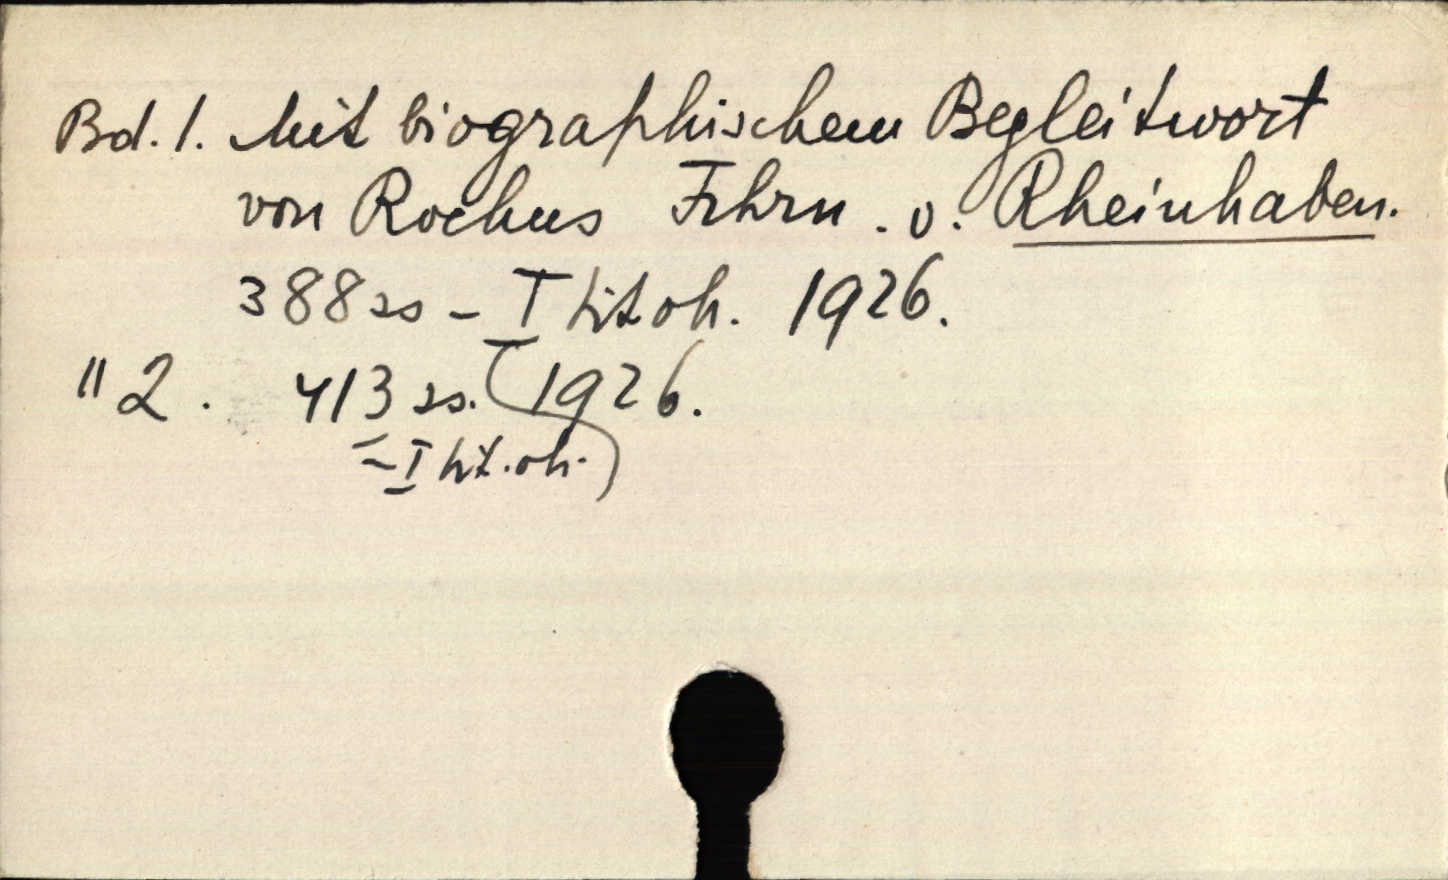 Bd. 1. Mit biographischem Begleitwort
von Rochus Frhrn. v. Rheinhaben.
388 ss – I tit oh. 1926.
" 2. 413 ss. 1926.
– I tit. oh.